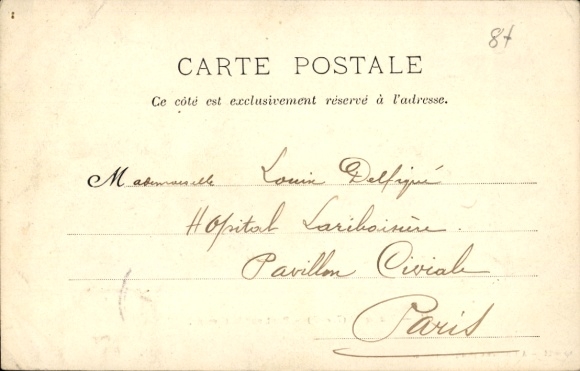 84
CARTE POSTALE
Ce côté est exclusivement réservé à l'adresse.
Mademoiselle Louise Delfiqué
Hôpital Lariboisière.
Pavillon Civiale
Paris